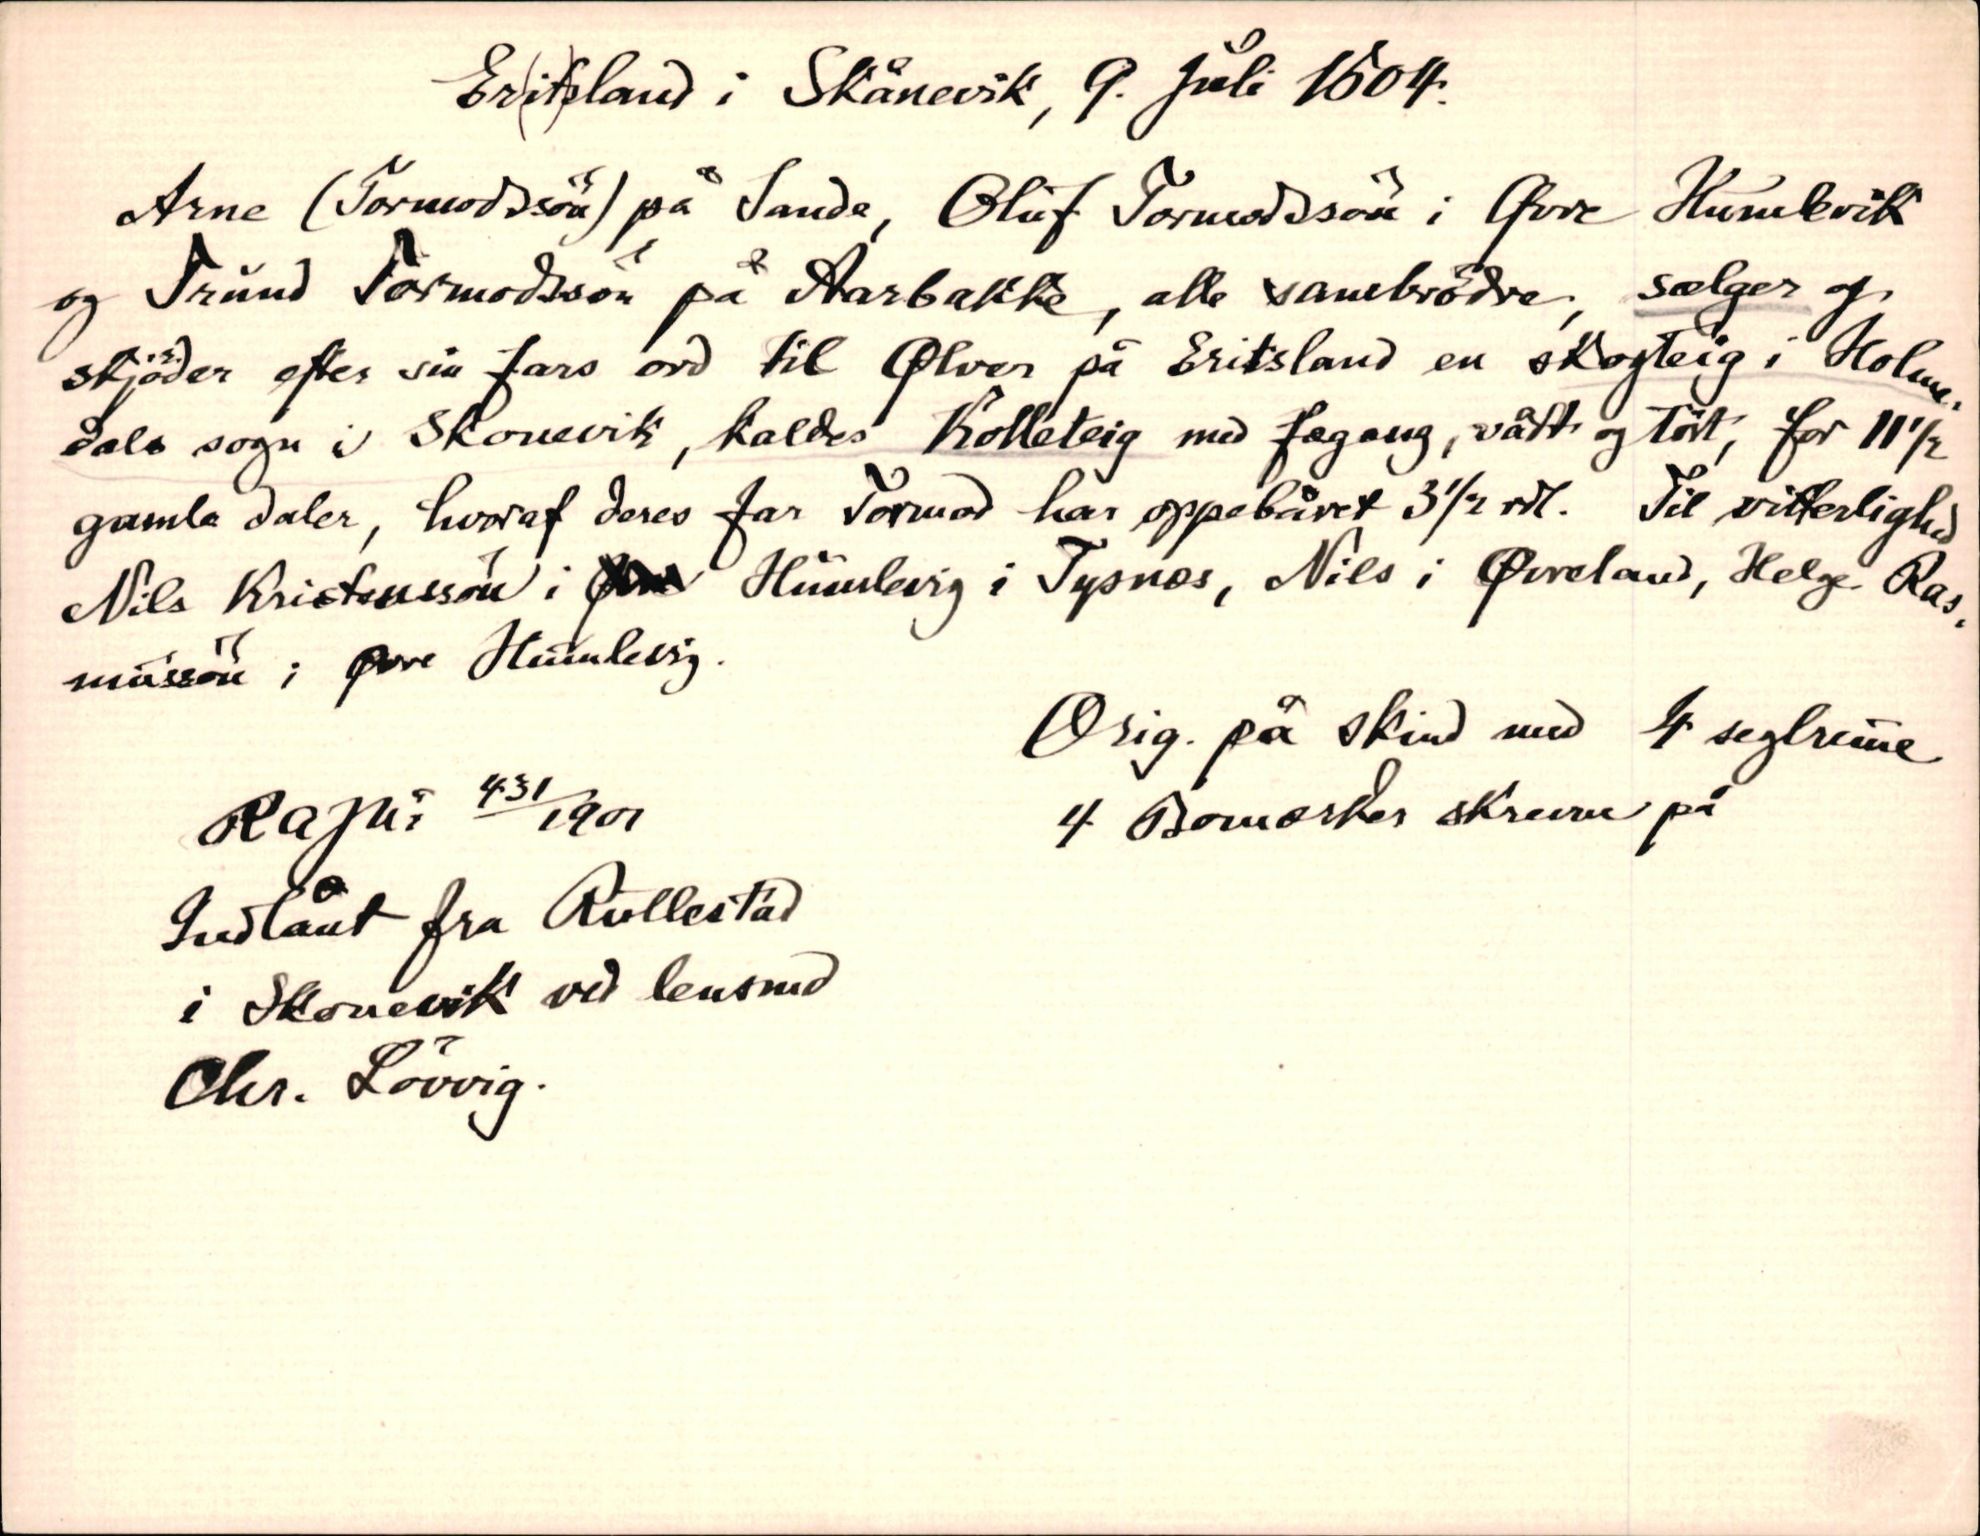 Er(it)sland i Skånevik, 9. Juli 1604.
Arne (Tormodssön) på Sande, Oluf Tormodssön i Øvre Humlevik
og Trund Tormodssön på Aarbakke, alle sambrödre, sælger og
skjöder efter sin fars ord til Ølver på Eritsland en skogteig i Holme-
dals sogn i Skonevik, kaldes Kolleteig med fægang, vått og tört, for 11 1/2
gamle daler, hvoraf deres far Tormod har oppebåret 3 1/2 rdl. Til vitterlighed
Nils Kristenssön i Humlevig i Tysnes, Nils i Øvreland, Helge Ras-
mussön i øvre Humlevig.
Orig. på skind med 4 seglremme
4 Bomærker skrevne på
RaJNr 431/1901
Indlånt fra Rullestad
i Skonevik ved lensmd
Chr. Lövvig.